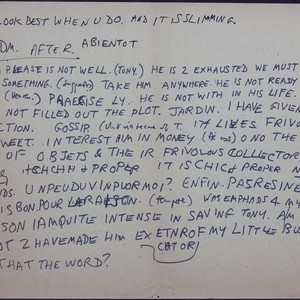 LOOK BEST WHEN U DO. AND IT IS SLIMMING.
DM. AFTER. ABIENTOT
PLEASE IS NOT WELL. (TONY.) HE IS 2 EXHAUSTED WE MUST
SOMETHING. TAKE HIM ANYWHERE. HE IS NOT READY
LY. HE IS NOT WITH IN HIS LIFE.
NOT FILLED OUT THE PLOT. JARDIN. I HAVE GIVEN
CTION. GOSSIP. OF T. IT LIKES FRIVOL
WEET. INTEREST HIM IN MONEY ONO THE
OF OBJETS & THE IR FRIVOLOUS COLLECTOR
& PROPER IT IS CHIC & PROPER N
DS. UN PEU DU VIN POUR MOI? ENFIN. PAS RESINE
IS BON. POUR WAS EMPHDS 4 MY
SON I AM QUITE INTENSE IN SAVING TONY. AM
OT 2 HAVE MADE HIM EXETNR OF MY LITTLE BU
CUTOR
THAT THE WORD?